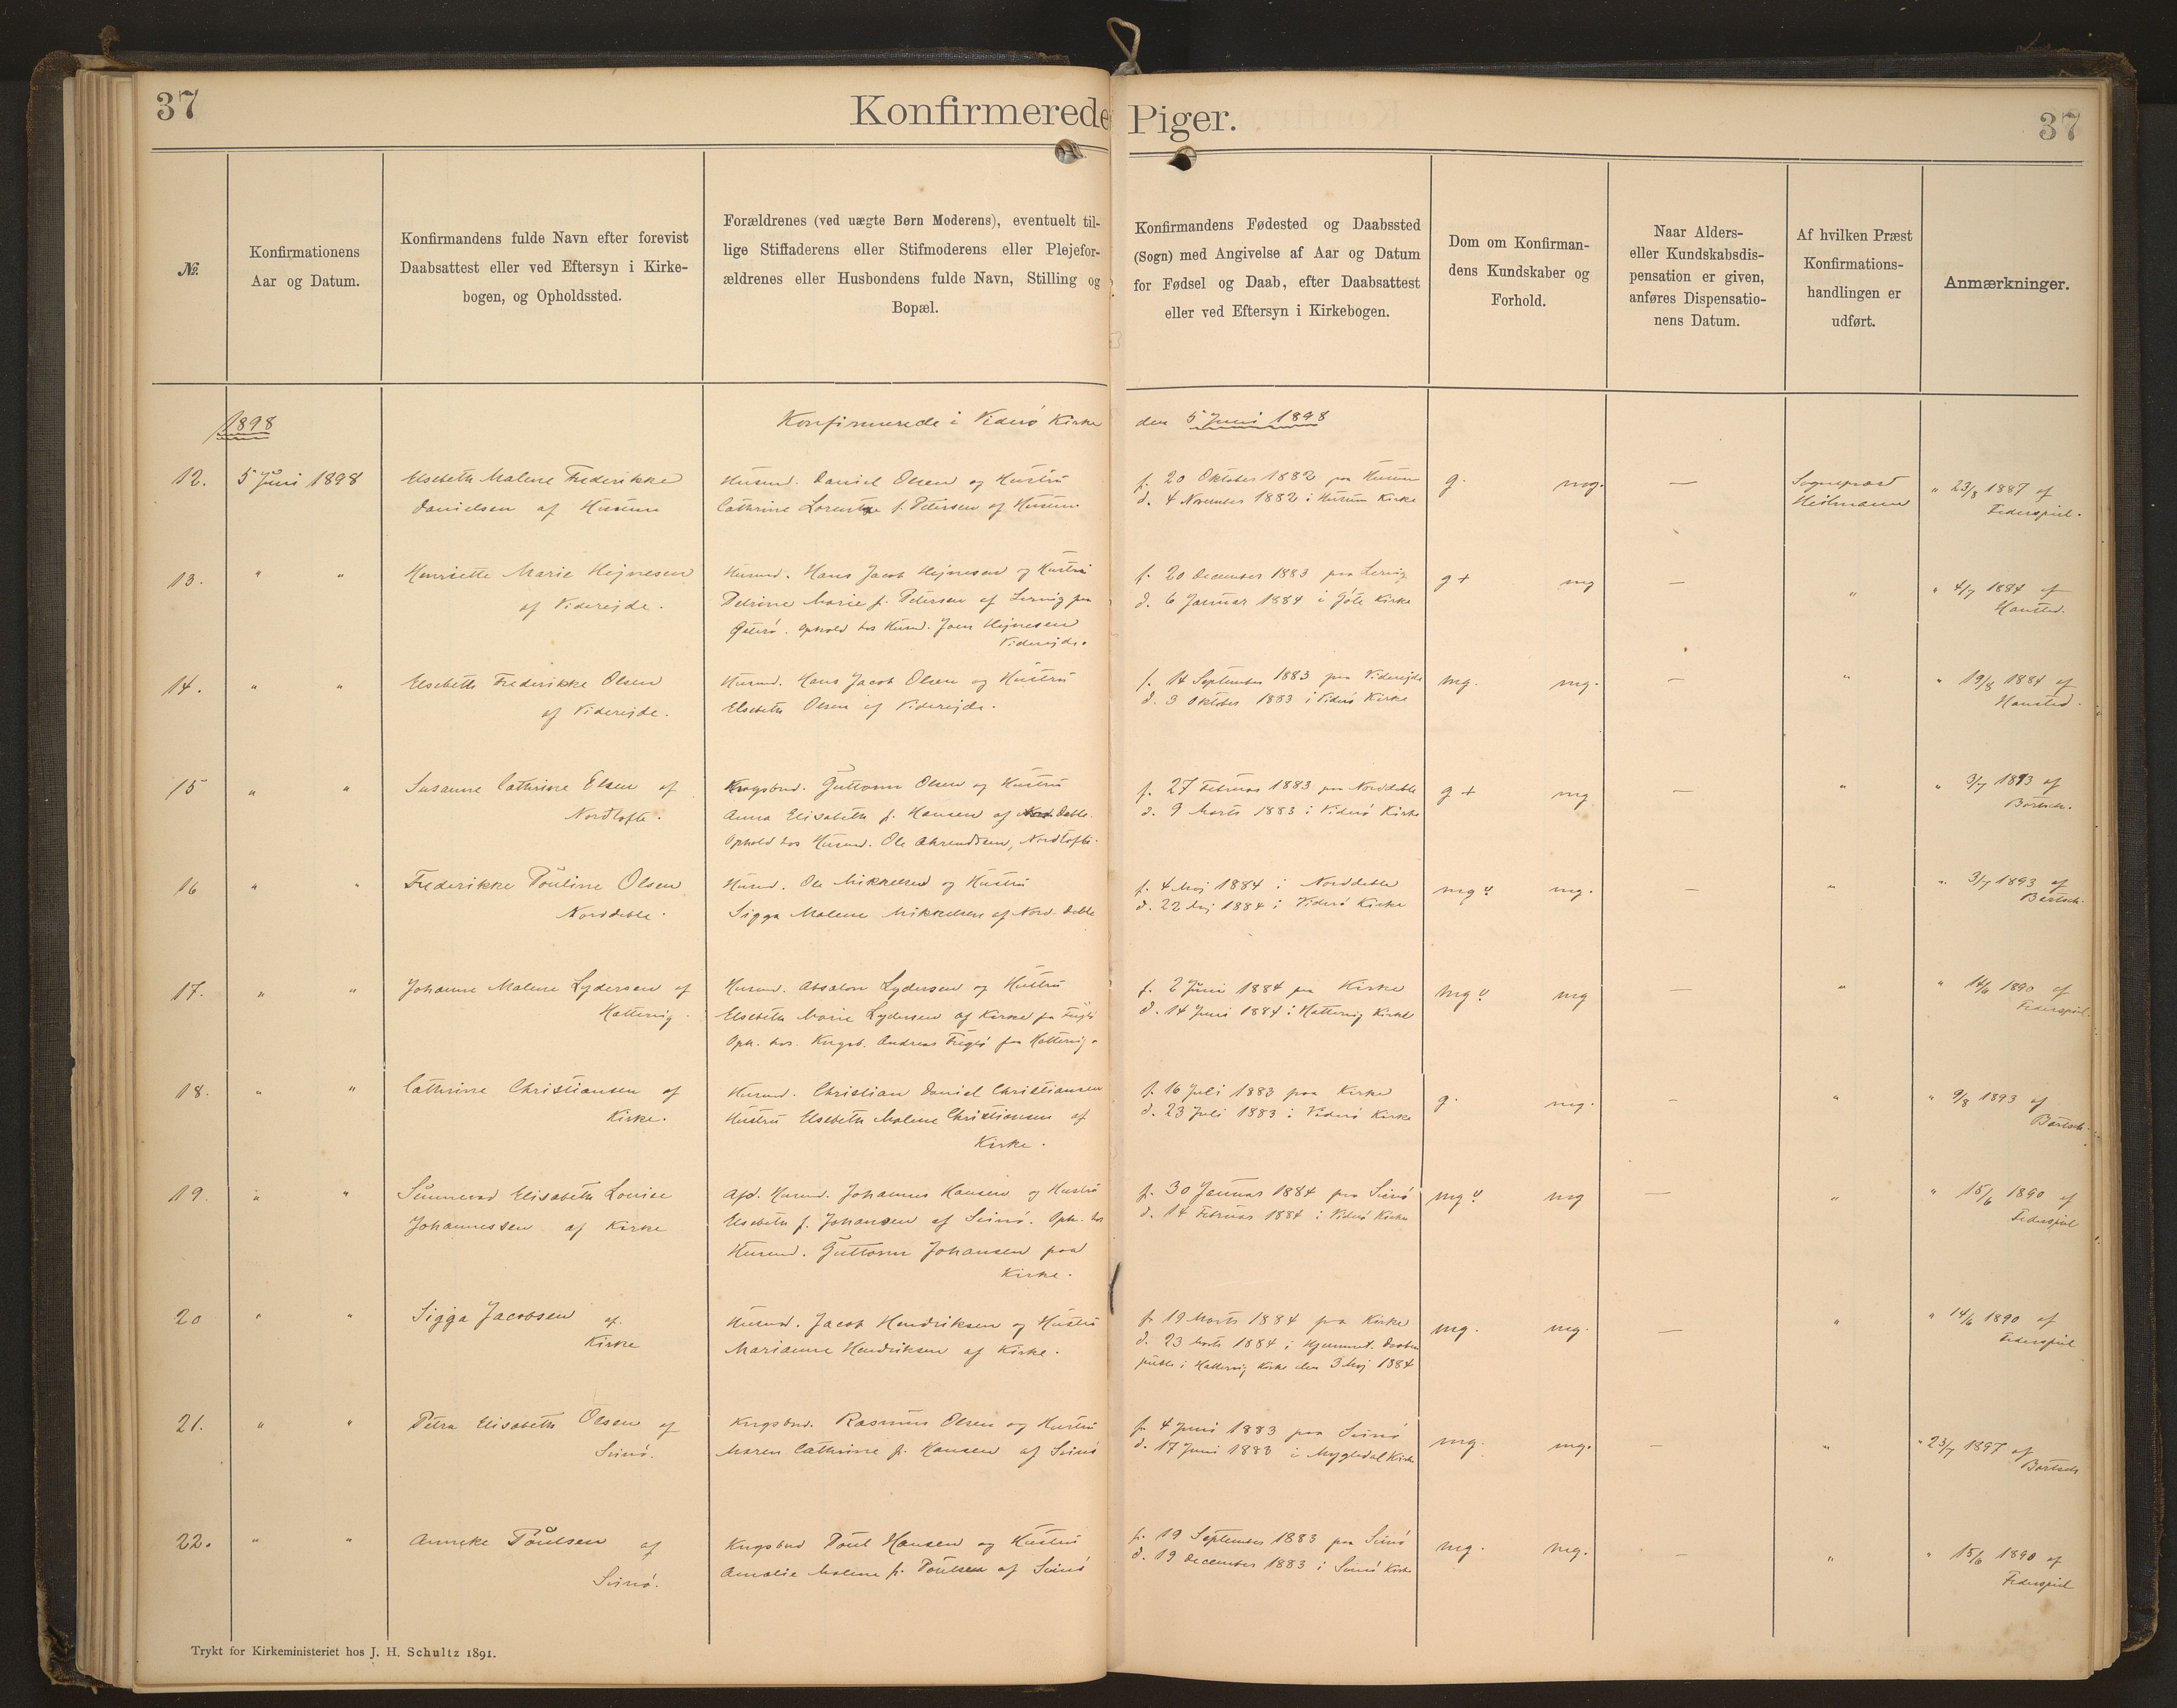 37
Konfirmerede Piger.
37
№.
Konfirmationens
Aar og Datum.
Konfirmandens fulde Navn efter forevist
Daabsattest eller ved Eftersyn i Kirke-
bogen, og Opholdssted.
Forældrenes (ved uægte Børn Moderens), eventuelt til-
lige Stiffaderens eller Stifmoderens eller Plejefor-
ældrenes eller Husbondens fulde Navn, Stilling og
Bopæl.
Konfirmandens Fødested og Daabssted
(Sogn) med Angivelse af Aar og Datum
for Fødsel og Daab, efter Daabsattest
eller ved Eftersyn i Kirkebogen.
Dom om Konfirman-
dens Kundskaber og
Forhold.
Naar Alders-
eller Kundskabsdis-
pensation er given,
anføres Dispensatio-
nens Datum.
Af hvilken Præst
Konfirmations-
handlingen er
udført.
Anmærkninger.
1898
Konfirmerede i Viderö Kirke den 5 Juni 1898
12.
5 Juni 1898
Elsebeth Malene Frederikke
Danielsen af Husum
Husmd. Daniel Olsen og Hustru
Cathrine f. Petersen af Husum.
f. 20 Oktober 1882 paa Husum
d. 4 November 1882 i Husum Kirke
g. mg. —
Sognepræst
" 23/8 1887 af
Federspiel.
13. " "
Henriette Marie Hejnesen
af Viderejde.
Husmd. Hans Jacob Hejnesen og Hustru
Petrine Marie f. Petersen af Lervig paa
Österö. Ophold hos Husmd. Joen Hejnesen
Viderejde.
f. 20 December 1883 paa Lervig
d. 6 Januar 1884 i Göte Kirke
g+ mg — "
" 4/7 1884 af
Hansted.
14. " "
Elsebeth Frederikke Olsen
af Viderejde.
Husmd. Hans Jacob Olsen og Hustru
Elsebeth Olsen af Viderejde.
f. 14 September 1883 paa Viderejde
d. 3 Oktober 1883 i Viderö Kirke
mg. mg. — "
" 19/8 1884 af
Hansted.
15 " "
Susanne Cathrine Olsen af
Nordtofte.
Kngsbnd. Guttorm Olsen og Hustru
Anna Elisabeth f. Hansen af Deble.
Ophold hos Husmd. Ole Ahrendtsen, Nordtofte.
f. 27 Februar 1883 paa Norddeble
d. 9 Marts 1883 i Viderö Kirke
g+ mg — "
" 3/7 1893 af
Bartsch.
16 " "
Frederikke Pouline Olsen
Norddeble.
Husmd. Ole Mikkelsen og Hustru
Sigga Malene Mikkelsen af Nord Deble
f. 4 Maj 1884 i Norddeble
d. 22 Maj 1884 i Viderö Kirke
mg mg. — "
" 3/7 1893 af
Bartsch.
17. " "
Johanne Malene Lydersen af
Hattervig.
Husmd. Absalon Lydersen og Hustru
Elsebeth Marie Lydersen af Kirke paa Fuglö
Oph. hos Kngsb. Andreas Fuglö paa Hattervig.
f. 2 Juni 1884 paa Kirke
d. 14 Juni 1884 i Hattervig Kirke
mg mg — "
" 14/6 1890 af
Federspiel.
18. " "
Cathrine Christiansen af
Kirke.
Husmd. Christian Daniel Christiansen
Hustru Elsebeth Malene Christiansen af
Kirke.
f. 16 Juli 1883 paa Kirke
d. 23 Juli 1883 i Viderö Kirke
g. mg. — "
" 9/8 1893 af
Bartsch.
19. " "
Sunnevad Elisabeth Louise
Johannessen af Kirke
Afd. Husmd. Johannes Hansen og Hustru
Elsebeth f. Johansen af Svinö. Oph. hos
Husmd. Guttorm Johansen paa
Kirke.
f. 30 Januar 1884 paa Svinö
d. 14 Februar 1884 i Viderö Kirke
mg mg — "
" 15/6 1890 af
Federspiel
20 " "
Sigga Jacobsen af
Kirke
Husmd. Jacob Hendriksen og Hustru
Marianne Hendriksen af Kirke.
f. 19 Marts 1884 paa Kirke
d. 23 Marts 1884 i Hjemmet. Daaben
publ. i Hattervig Kirke den 3 Maj 1884
mg. mg. — "
" 14/6 1890 af
Federspiel
21. " "
Petra Elisabeth Olsen af
Svinö.
Kngsbnd. Rasmus Olsen og Hustru
Maren Cathrine f. Hansen af Svinö
f. 4 Juni 1883 paa Svinö
d. 17 Juni 1883 i Mygledal Kirke
mg. mg. — "
" 23/7 1897 af
Bartsch
22. " "
Anneke Poulsen af
Svinö.
Kngsbnd Poul Hansen og Hustru
Amalie Malene f. Poulsen af Svinö
f. 19 September 1883 paa Svinö
d. 19 December 1883 i Svinö Kirke
mg. mg. — "
" 15/6 1890 af
Federspiel
Trykt for Kirkeministeriet hos J. H. Schultz 1891.